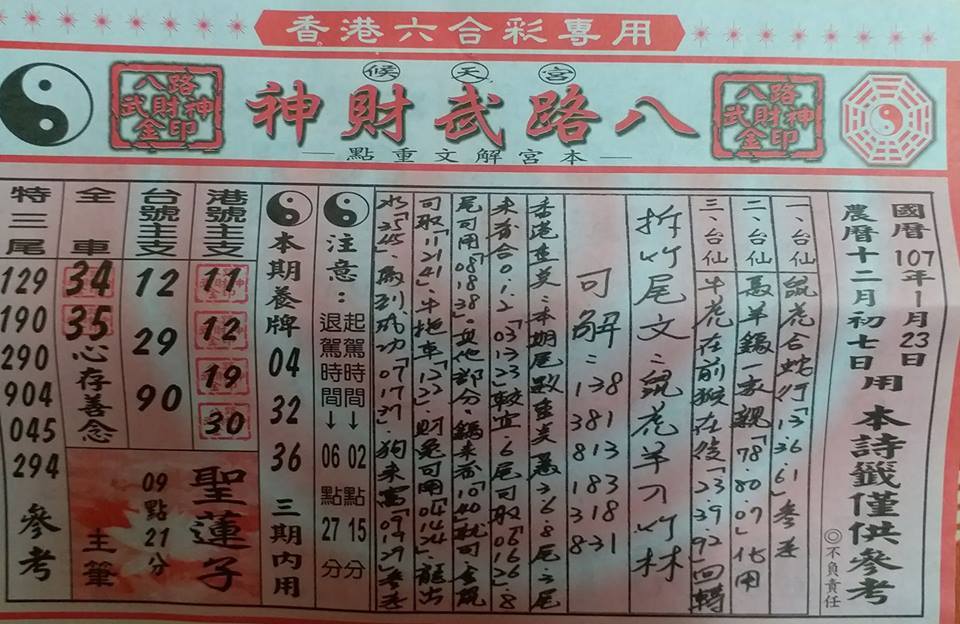 香港六合彩專用
候天宮
八路武財神
八路
武財神
金印
八路
武財神
金印
本宮解文重點
國曆107年1月23日
農曆十二月初七日
用
本詩籤僅供參考
◎不負責任
一、台仙
鼠虎合蛇行「13.36.61」參差
二、台仙
馬羊鷄一家親「78.80.09」化用
三、台仙
牛虎在前猴在後「23.39.92」回轉
拆竹尾文：鼠虎羊刀竹林
可解：138
381
813
183
318
831
香港重美：本期尾數重美愚3.6.8尾：尾
來為合0.1.2「03.13.23」較宜.6尾可取「06.16.26」.8
尾可用「08.18.38」.其他部分.鷄來為「10.40」就可.金鼠
可取「11.21.41」.牛拖車「13.23」.財兔可用「04.14.24」龍出
水「25.45」.馬到成功「07.17.37」狗來富「09.19.29」參差
注意：
起駕時間→02點15分
退駕時間→06點27分
本期養牌 04 32 36 三期內用
港號主支
11
12
19
30
台號主支
12
29
90
全車
34
35
心存善念
特三尾
129
190
290
904
045
294
參考
聖蓮子
09點21分
主筆